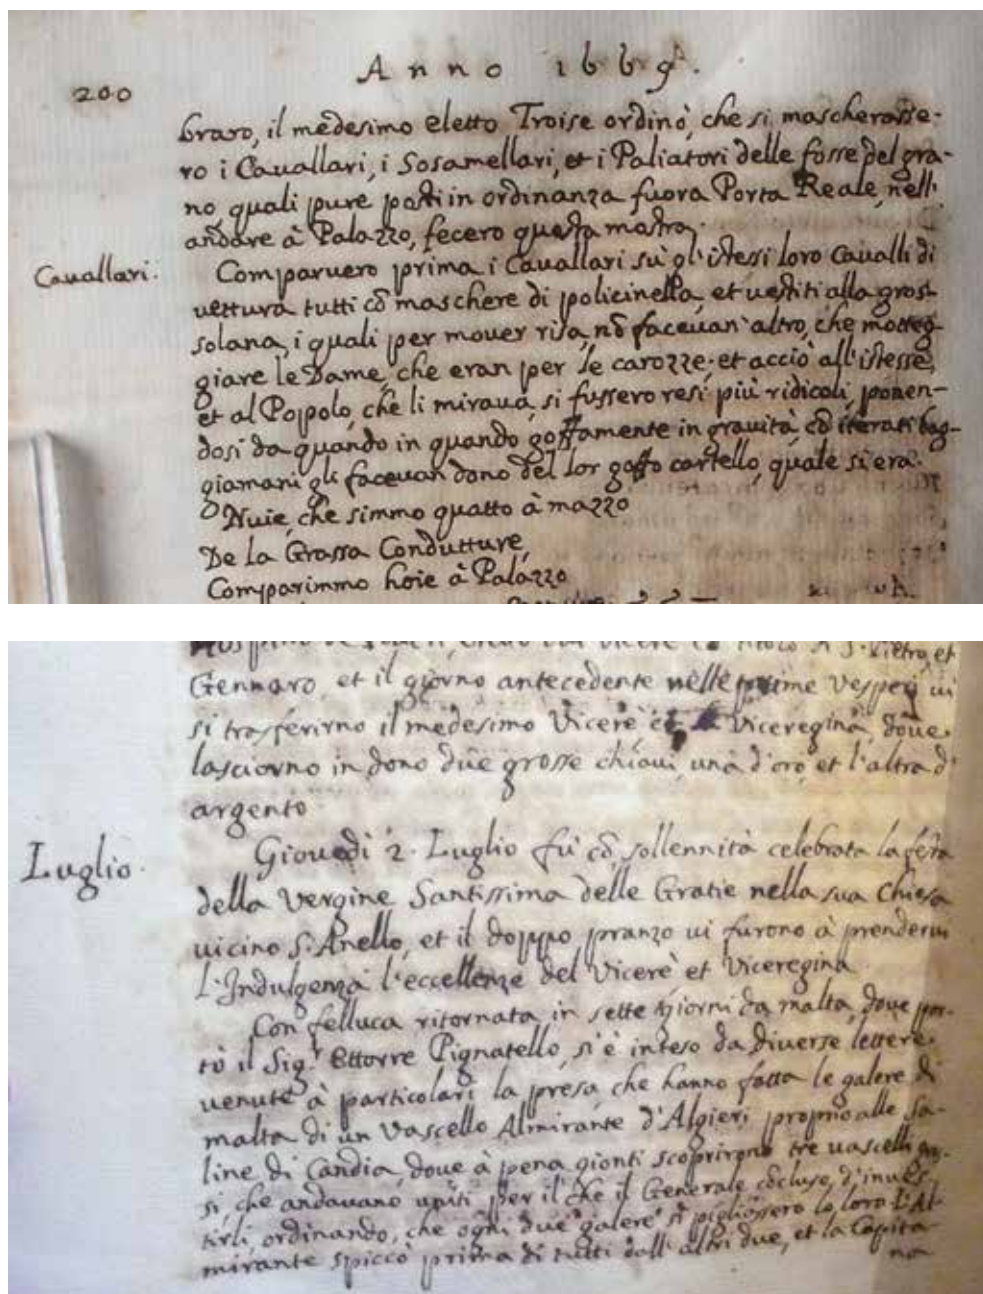 Anno 1669.
200
braro, il medesimo eletto Troise ordinò, che si mascherasse-
ro i Cauallari, i Sosamellari, et i Paliatori delle fosse del gra-
no, quali pure posti in ordinanza fuora Porta Reale, nell'
andare à Palazzo, fecero questa mostra.
Cauallari.
Comparuero prima i Cauallari sù gl'istessi loro Caualli di
uettura tutti cõ maschere di policinella, et uestiti alla gros-
solana, i quali per mouer risa, nõ faceuan' altro, che motteg-
giare le Dame, che eran per le carozze; et acciò all'istesse,
et al Popolo, che li miraua, si fussero resi più ridicoli, ponen-
dosi da quando in quando goffamente in grauità, cõ iterati bag-
giamani gli faceuan dono del lor goffo cartello, quale si era.
Nuie, che simmo quatto à mazzo
De la Grassa Condutture,
Comparimmo hoie à Palazzo
S. Pietro, et
Gennaro, et il giorno antecedente nelle prime Vesperi ui
si trasferirno il medesimo Vicerè et Viceregina, doue
lasciorno in dono due grosse chiaui, una d'oro, et l'altra d'
argento
Luglio.
Giouedì 2. Luglio fù cõ sollennità celebrata la festa
della Vergine Santissima delle Gratie nella sua Chiesa
uicino S. Anello, et il doppo pranzo ui furono à prenderui
l'Indulgenza l'eccellenze del Vicerè et Viceregina.
Con felluca ritornata in sette giorni da malta, doue por-
tò il Sig.r Ettorre Pignatello, si è inteso da diuerse lettere
uenute à particolari la presa, che hanno fatta le galere di
malta di un Vascello Almirante d'Algieri proprio alle Sa-
line di Candia, doue à pena gionti scoprirono tre uascelli
si, che andauano uniti per il che il Generale cõcluse d'inues-
tirli, ordinando, che ogni due galere si pigliassero lo loro l'Al-
mirante spiccò prima di tutti dall' altri due, et la Capita-
na